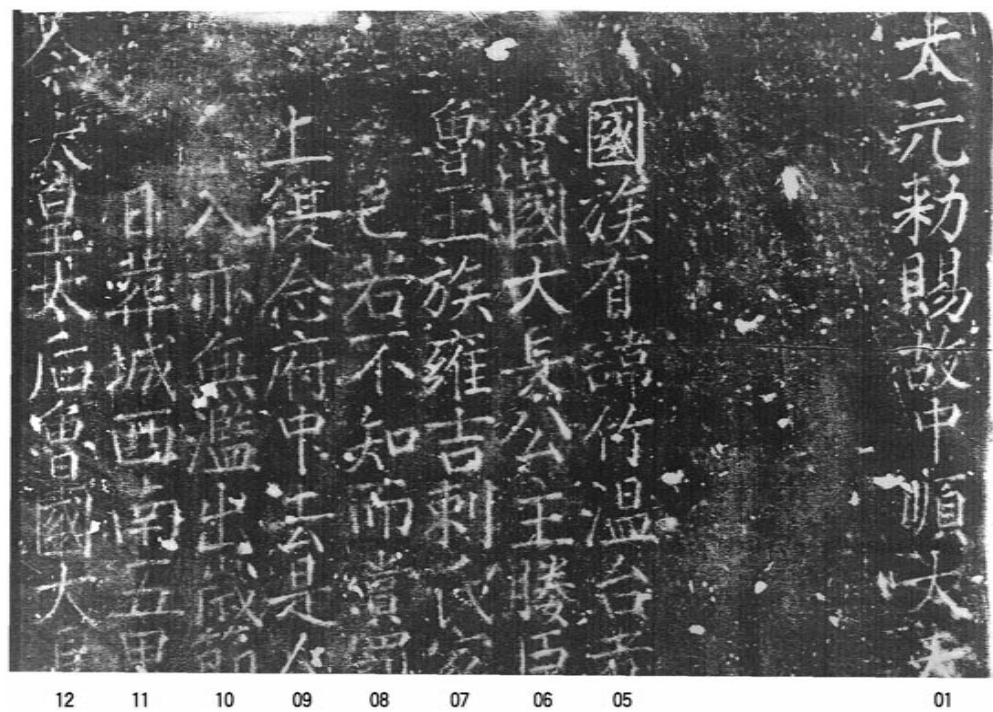 大元勑賜故中順大夫
國有諱竹温台者
魯國大長公主媵臣
魯王族雍吉剌氏
已若不知而嘗
上復念府中去是
入亦無濫出歲
日葬城西南五里
皇太后魯國大長
12 11 10 09 08 07 06 05 01